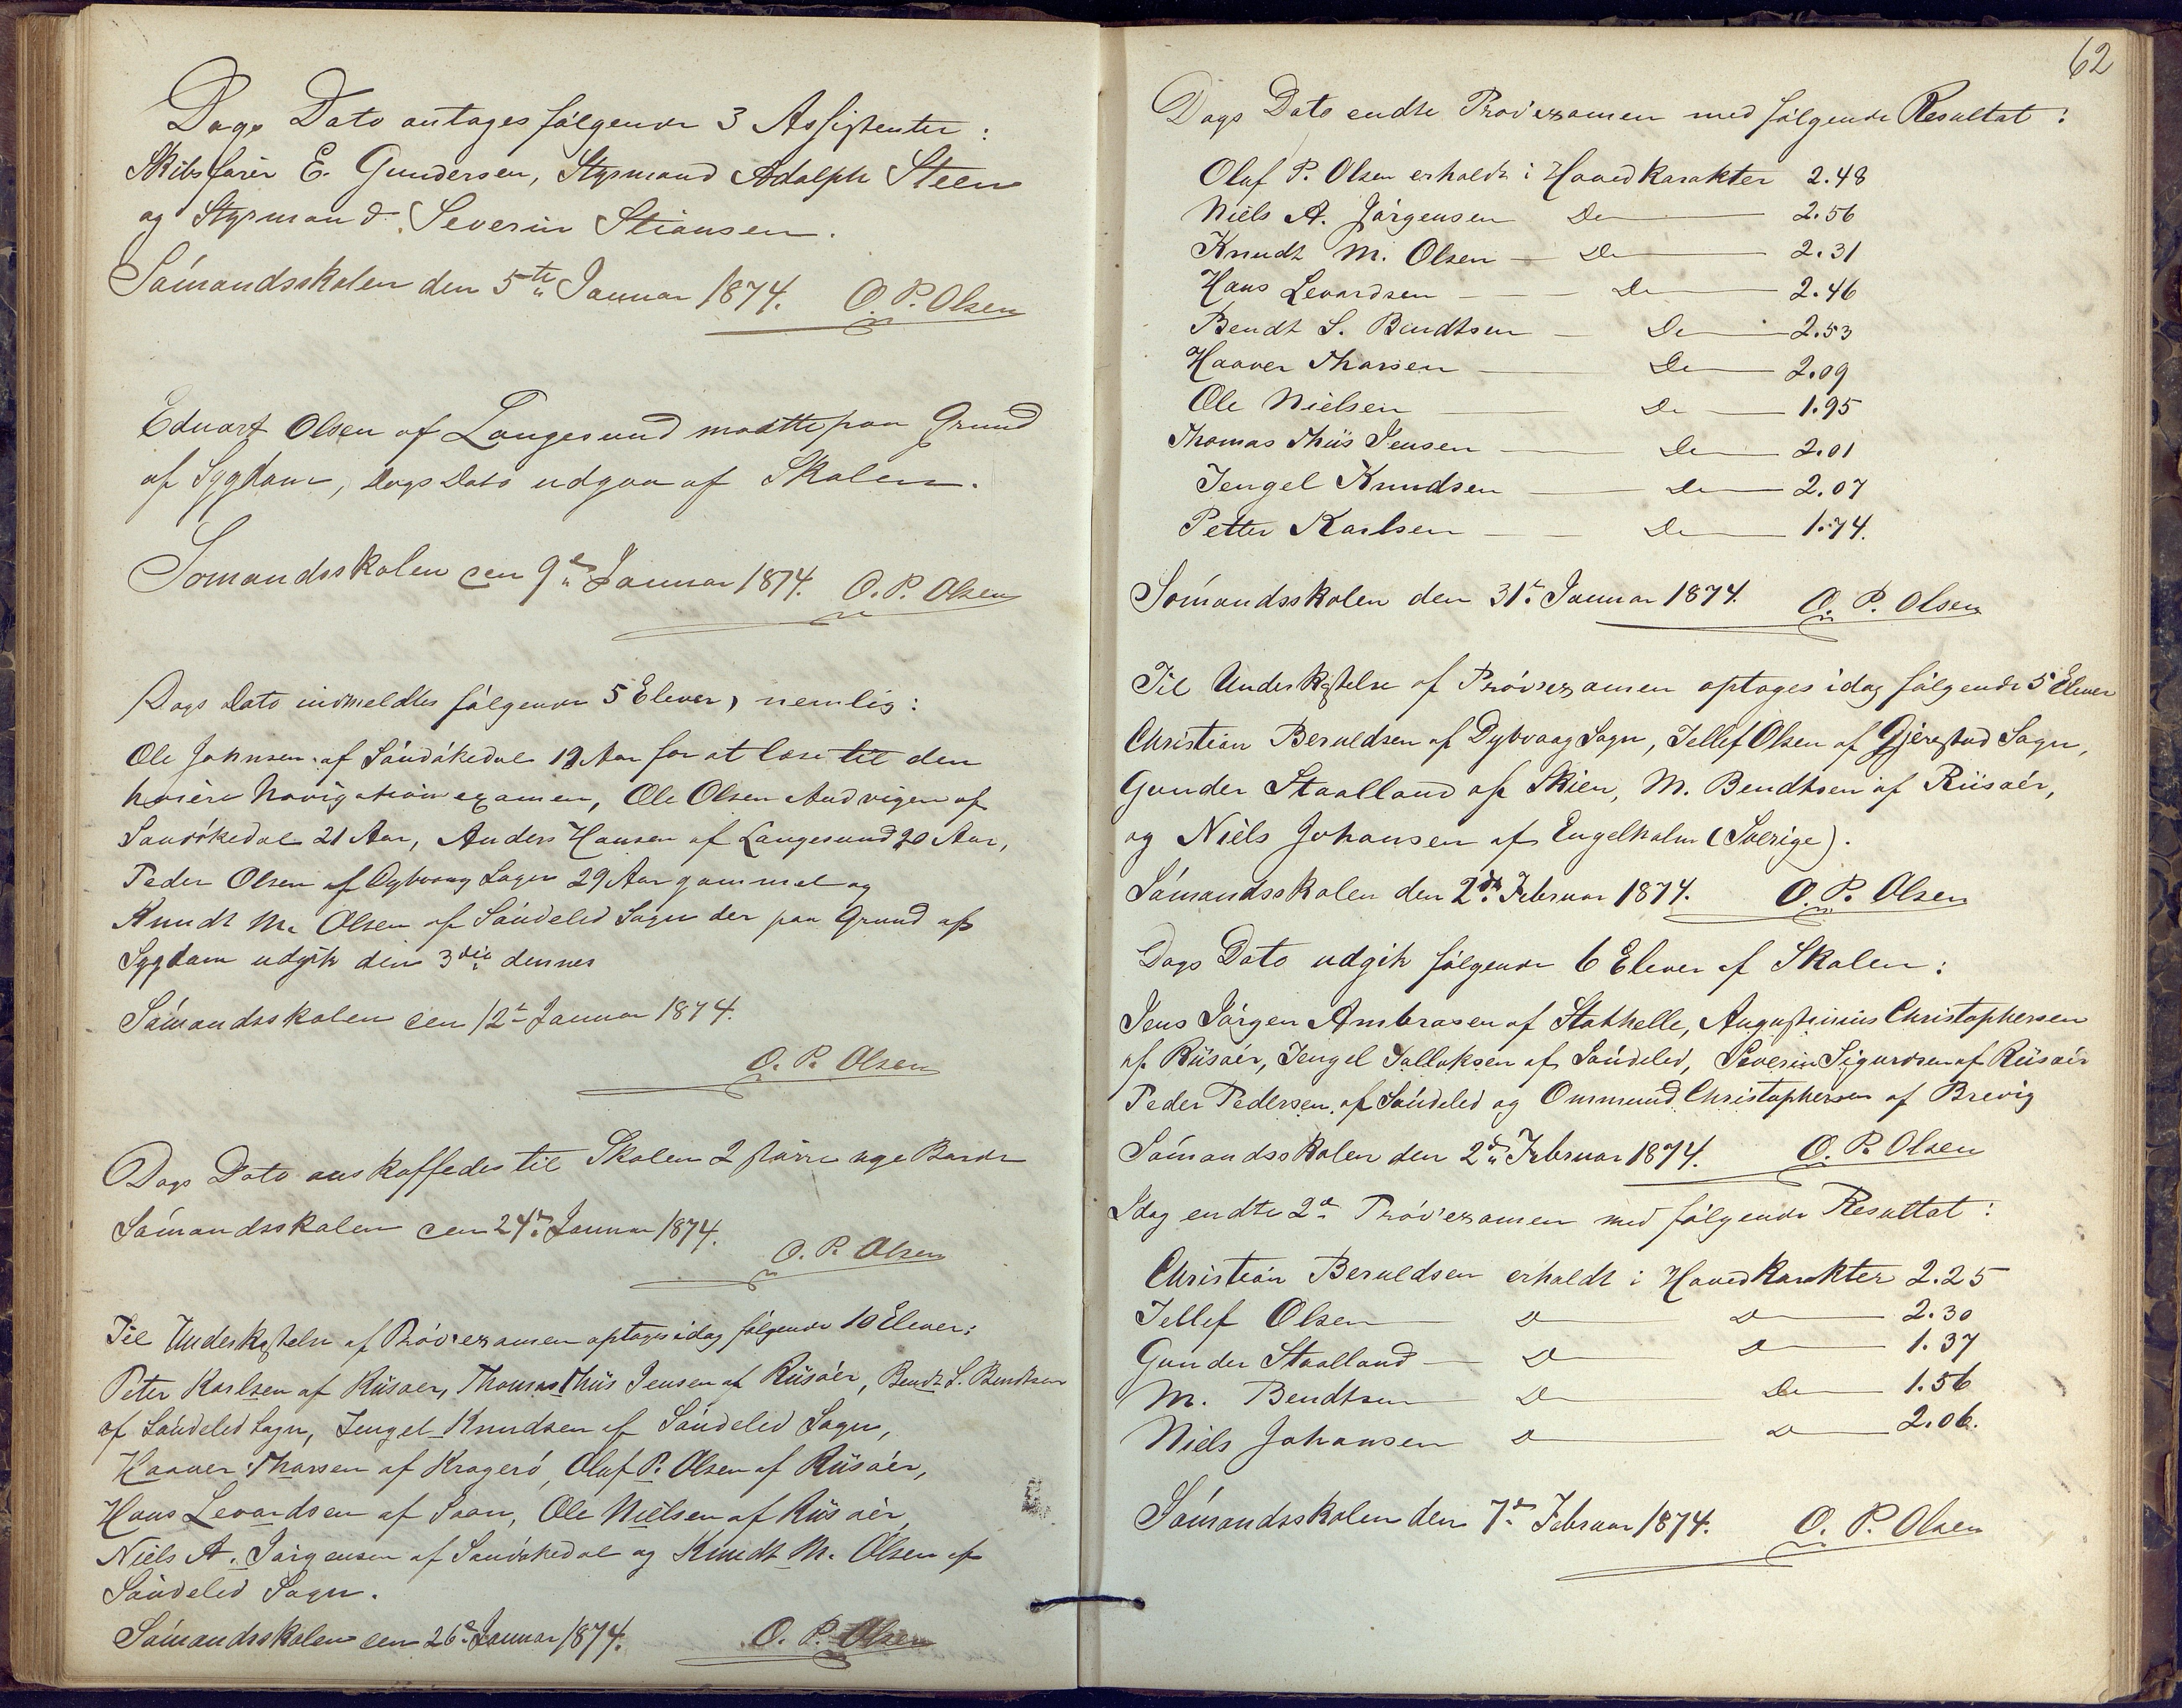 Dags Dato antages følgende 3 Assistenter:
Skibsfører E. Gundersen, Styrmand Adolph Steen
og Styrmand Severin Stiansen.
Sömandsskolen den 5te Januar 1874. O. P. Olsen
Eduart Olsen af Langesund maatte paa Grund
af Sygdom, Dags Dato udgaa af Skolen.
Sömandsskolen den 9de Januar 1874. O. P. Olsen
Dags Dato indmeldtes følgende 5 Elever, nemlig:
Ole Johnsen af Sandökedal 19 Aar for at læse til den
höiere Navigationsexamen, Ole Olsen Andvigen af
Sandökedal 21 Aar, Anders Hansen af Langesund 20 Aar,
Peder Olsen af Dybvaag Sogn 29 Aar gammel og
Knudt M. Olsen af Söndeled Sogn der paa Grund af
Sygdom udgik den 3die dennes
Sömandsskolen den 12te Januar 1874.
O. P. Olsen
Dags Dato anskaffedes til Skolen 2 större nye Borde
Sömandsskolen den 24de Januar 1874.
O. P. Olsen
Til Underkastelse af Pröveexamen optages idag følgende 10 Elever:
Peter Karlsen af Riisöer, Thomas Thiis Jensen af Riisöer, Bendt S. Bendtsen
af Söndeled Sogn, Tengel Knudsen af Söndeled Sogn,
Haaver Thorsen af Kragerö, Oluf P. Olsen af Riisöer,
Hans Levordsen af Soon, Ole Nielsen af Riisöer,
Niels A. Jörgensen af Sandökedal og Knudt M. Olsen af
Söndeled Sogn.
Sömandsskolen den 26de Januar 1874. O. P. Olsen
62
Dags Dato endte Pröveexamen med følgende Resultat:
Oluf P. Olsen erholdt i Hovedkarakter 2.48
Niels A. Jörgensen Do 2.56
Knudt M. Olsen — Do 2.31
Hans Levordsen — Do 2.46
Bendt S. Bendtsen — Do 2.53
Haaver Thorsen — Do 2.09
Ole Nielsen — Do 1.95
Thomas Thiis Jensen — Do 2.01
Tengel Knudsen — Do 2.07
Petter Karlsen — Do 1.74.
Sömandsskolen den 31te Januar 1874. O. P. Olsen
Til Underkastelse af Pröveexamen optages idag følgende 5 Elever
Christian Beruldsen af Dybvaag Sogn, Tellef Olsen af Gjerestad Sogn,
Gunder Staalland af Skien, M. Bendtsen af Riisöer,
og Niels Johansen af Engelholm (Sverige).
Sömandsskolen den 2den Februar 1874. O. P. Olsen
Dags Dato udgik følgende 6 Elever af Skolen:
Jens Jörgen Ambrosen af Stathelle, Augustinius Christophersen
af Riisöer, Tengel Tallaksen af Söndeled, Severin Sigurdsen af Riisöer
Peder Pedersen af Söndeled og Ommund Christophersen af Brevig
Sömandsskolen den 2den Februar 1874. O. P. Olsen
Idag endte 2den Pröveexamen med følgende Resultat:
Christian Beruldsen erholdt i Hovedkarakter 2.25
Tellef Olsen — Do Do 2.30
Gunder Staalland — Do Do 1.37
M. Bendtsen Do Do 1.56
Niels Johansen Do Do 2.06.
Sömandsskolen den 7de Februar 1874. O. P. Olsen